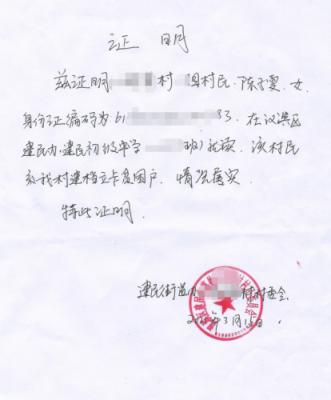 证 明
兹证明 村 组村民 陈子雯, 女
身份证编码为 61 33. 在汉滨区
建民办建民初级中学 班)就读. 该村民
系我村建档立卡贫困户. 情况属实
特此证明.
建民街道办 村村委会.
3月15日.